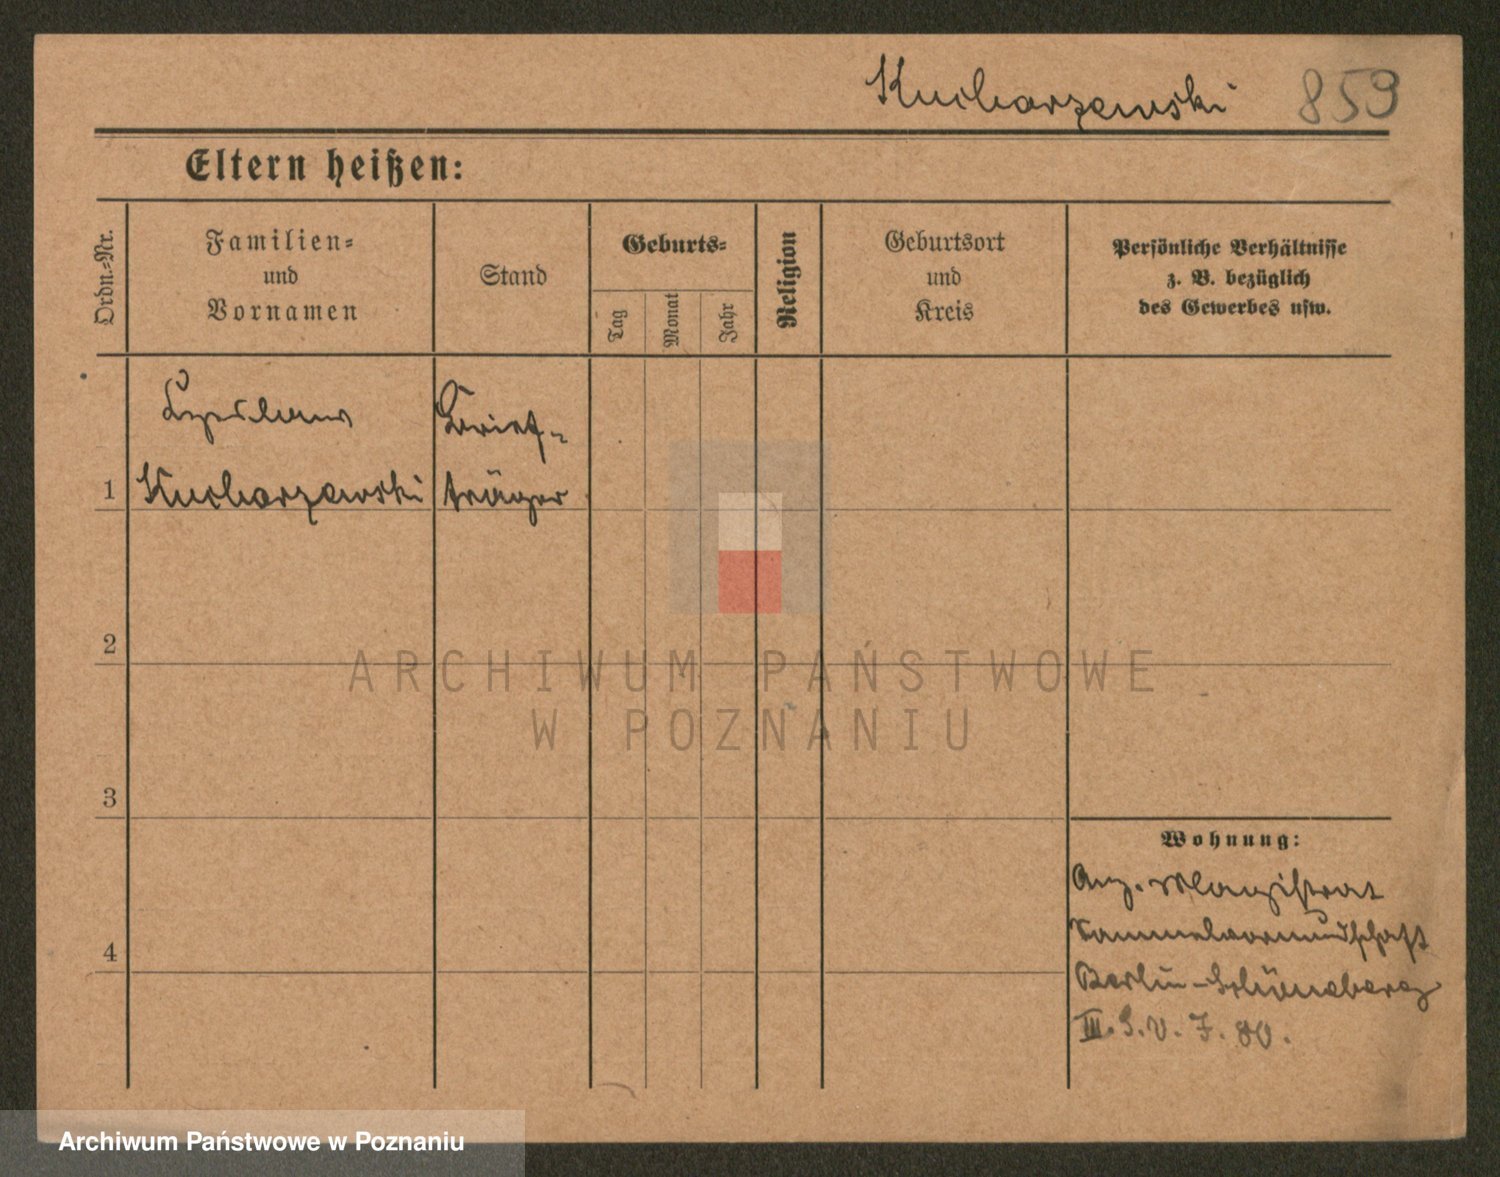 Kucharzewski 859
Eltern heißen:
Ordn.-Nr.
Familien-
und
Vornamen
Stand
Geburts-
Tag
Monat
Jahr
Religion
Geburtsort
und
Kreis
Persönliche Verhältnisse
z. B. bezüglich
des Gewerbes usw.
Brief-
1 Kucharzewski träger
2
3
4
Wohnung:
Ang. Magistrat
Sammelvormundschaft
Berlin-Schöneberg
III. J. 80.
ARCHIWUM PAŃSTWOWE
W POZNANIU
Archiwum Państwowe w Poznaniu